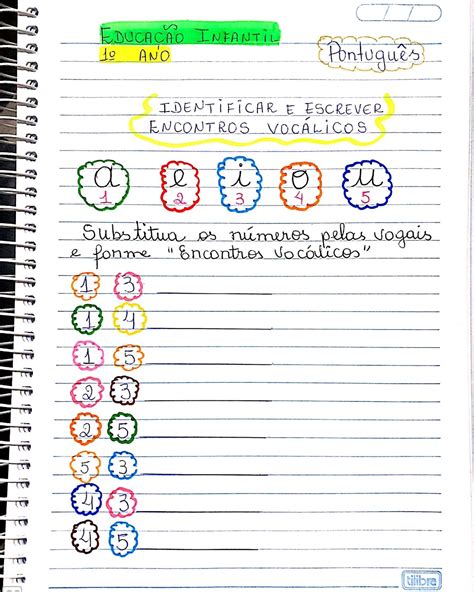 EDUCAÇÃO INFANTIL
1º ANO
Português
IDENTIFICAR E ESCREVER
ENCONTROS VOCÁLICOS
a e i o u
1 2 3 4 5
Substitua os números pelas vogais
e forme "Encontros Vocálicos"
1 3
1 4
1 5
2 3
2 5
5 3
4 3
4 5
tilibra